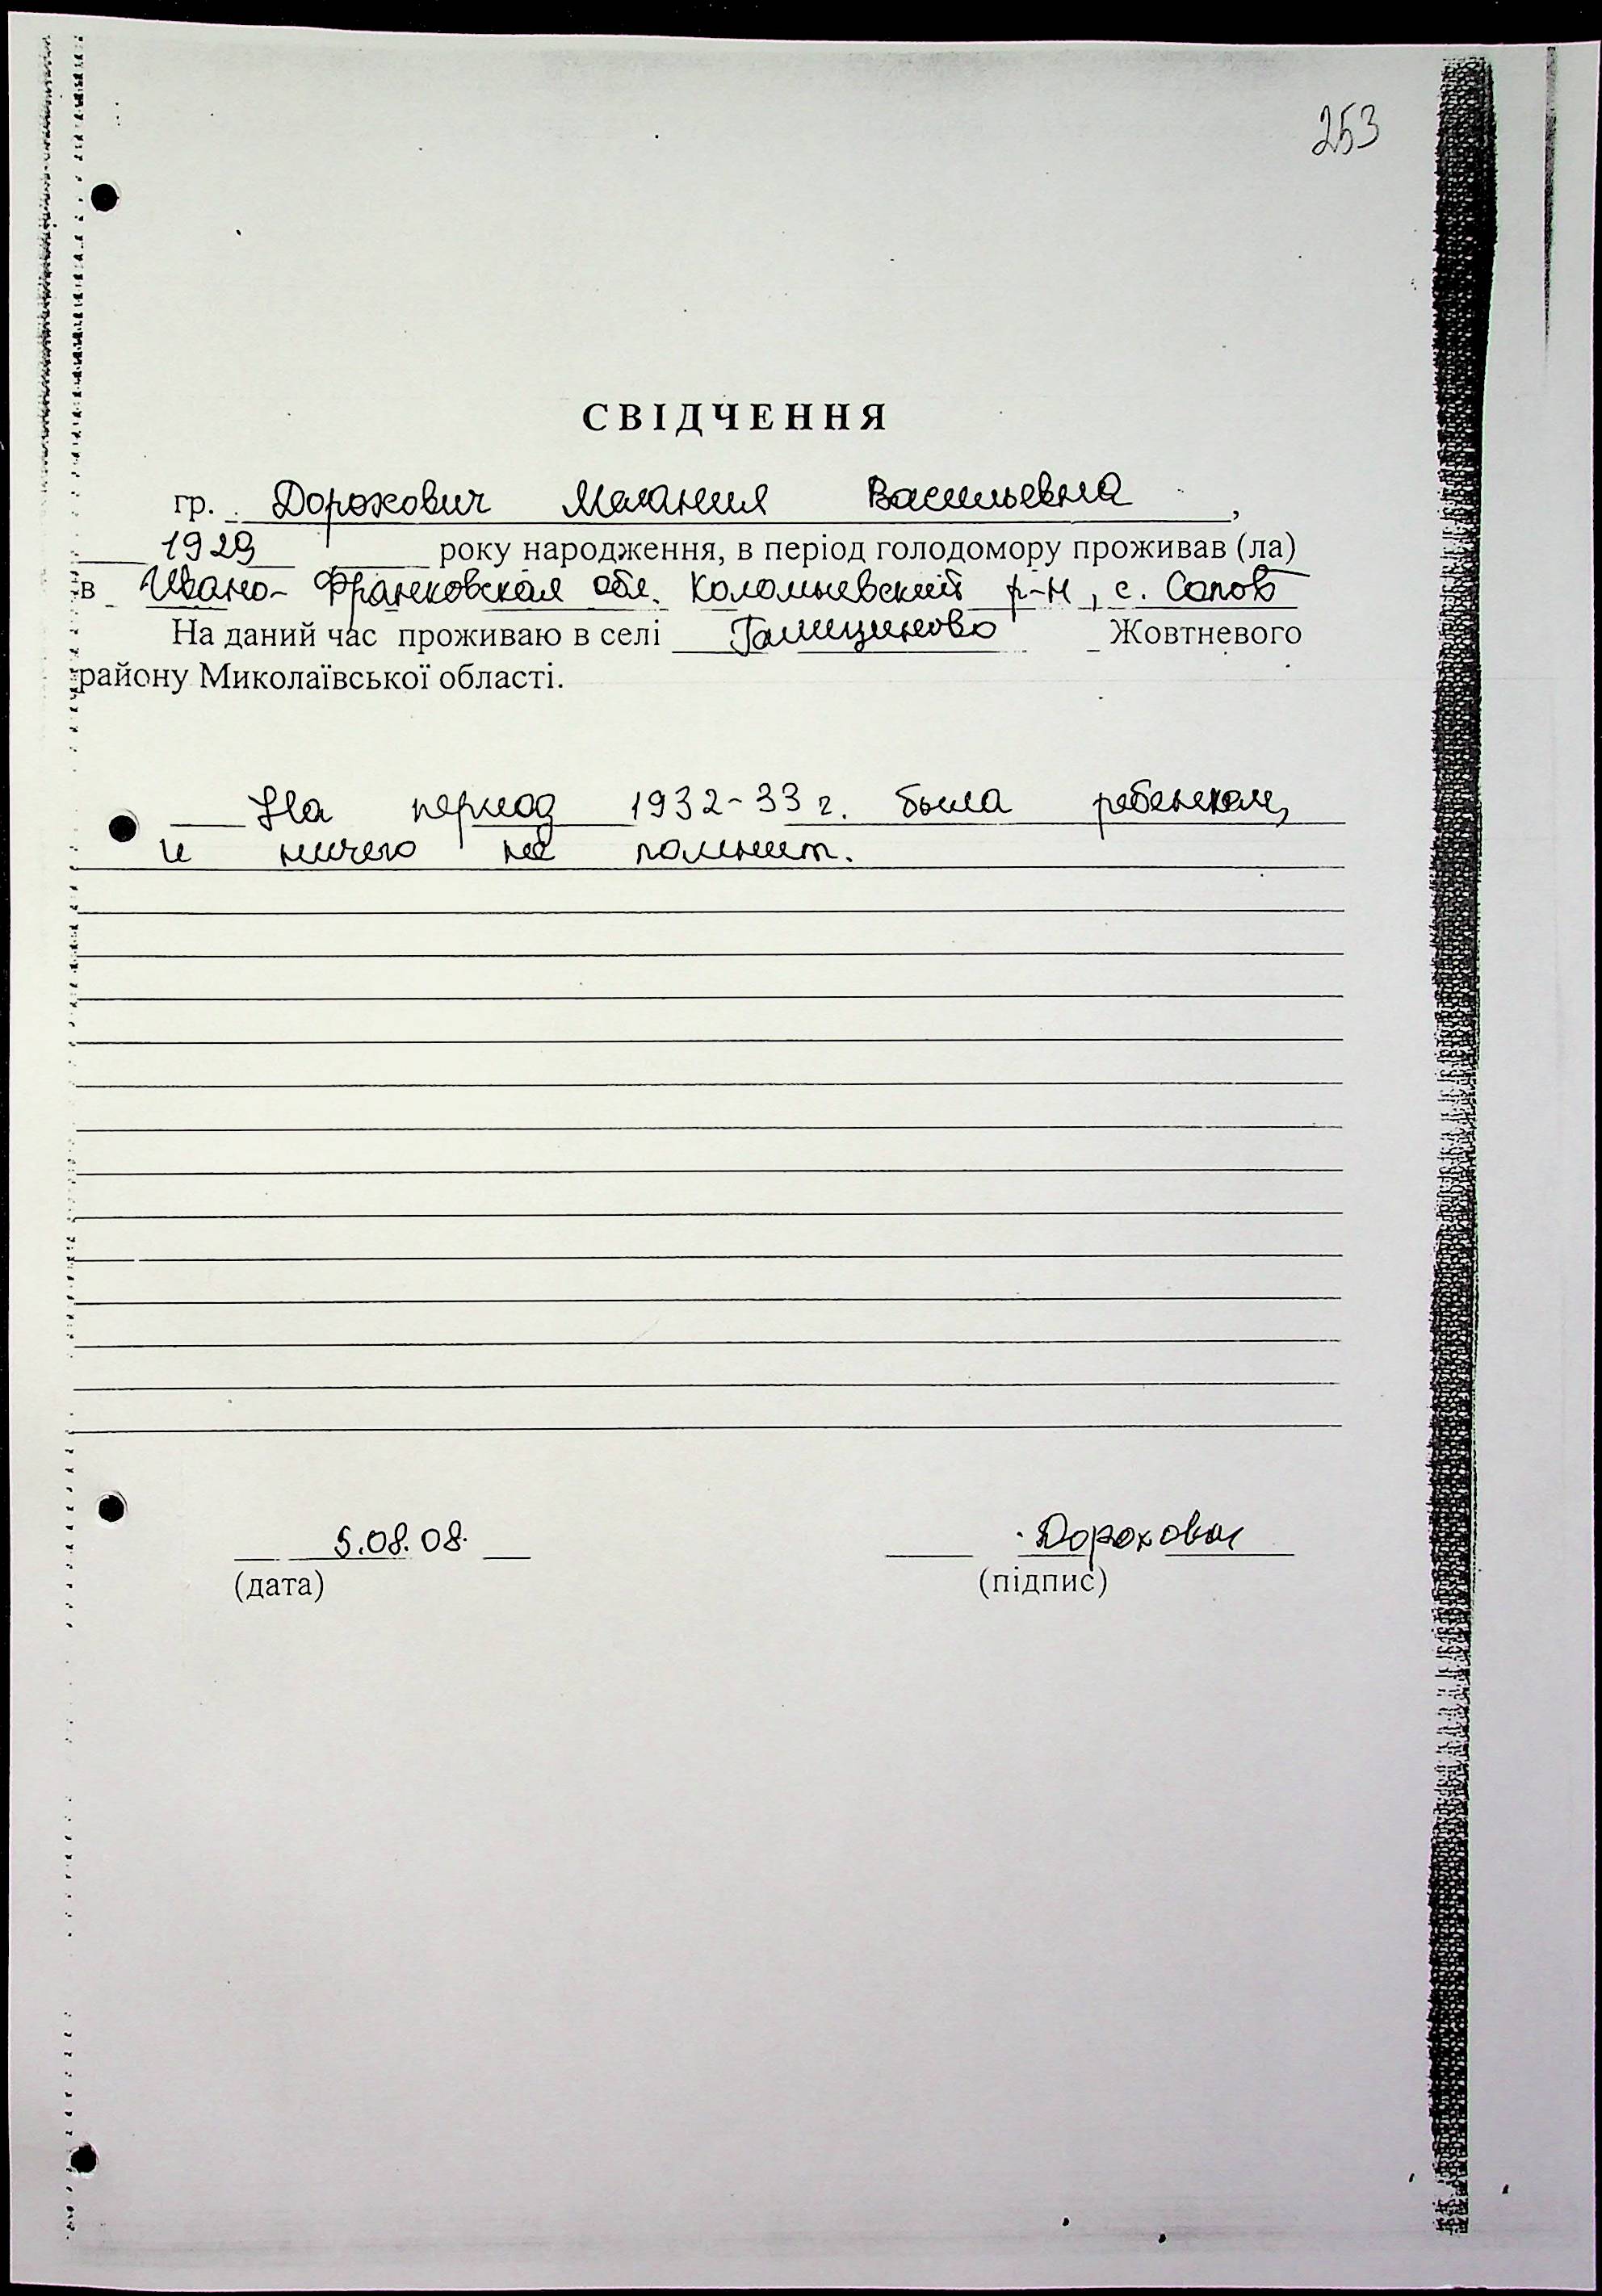 253
СВІДЧЕННЯ
гр. Дорохович Мелания Васильевна,
1929 року народження, в період голодомору проживав (ла)
в Ивано-Франковская обл. Коломыевский р-н, с. Сопов
На даний час проживаю в селі Галициново Жовтневого
району Миколаївської області.
На период 1932-33 г. была ребенком,
и ничего не помнит.
5.08.08. Дорохович
(дата) (підпис)